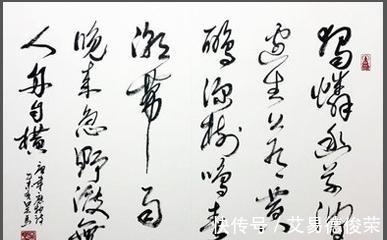 独怜幽草涧
边生上有黄
鹂深树鸣春
潮带雨
晚来急野渡无
人舟自横
快传号／艾易德俊荣